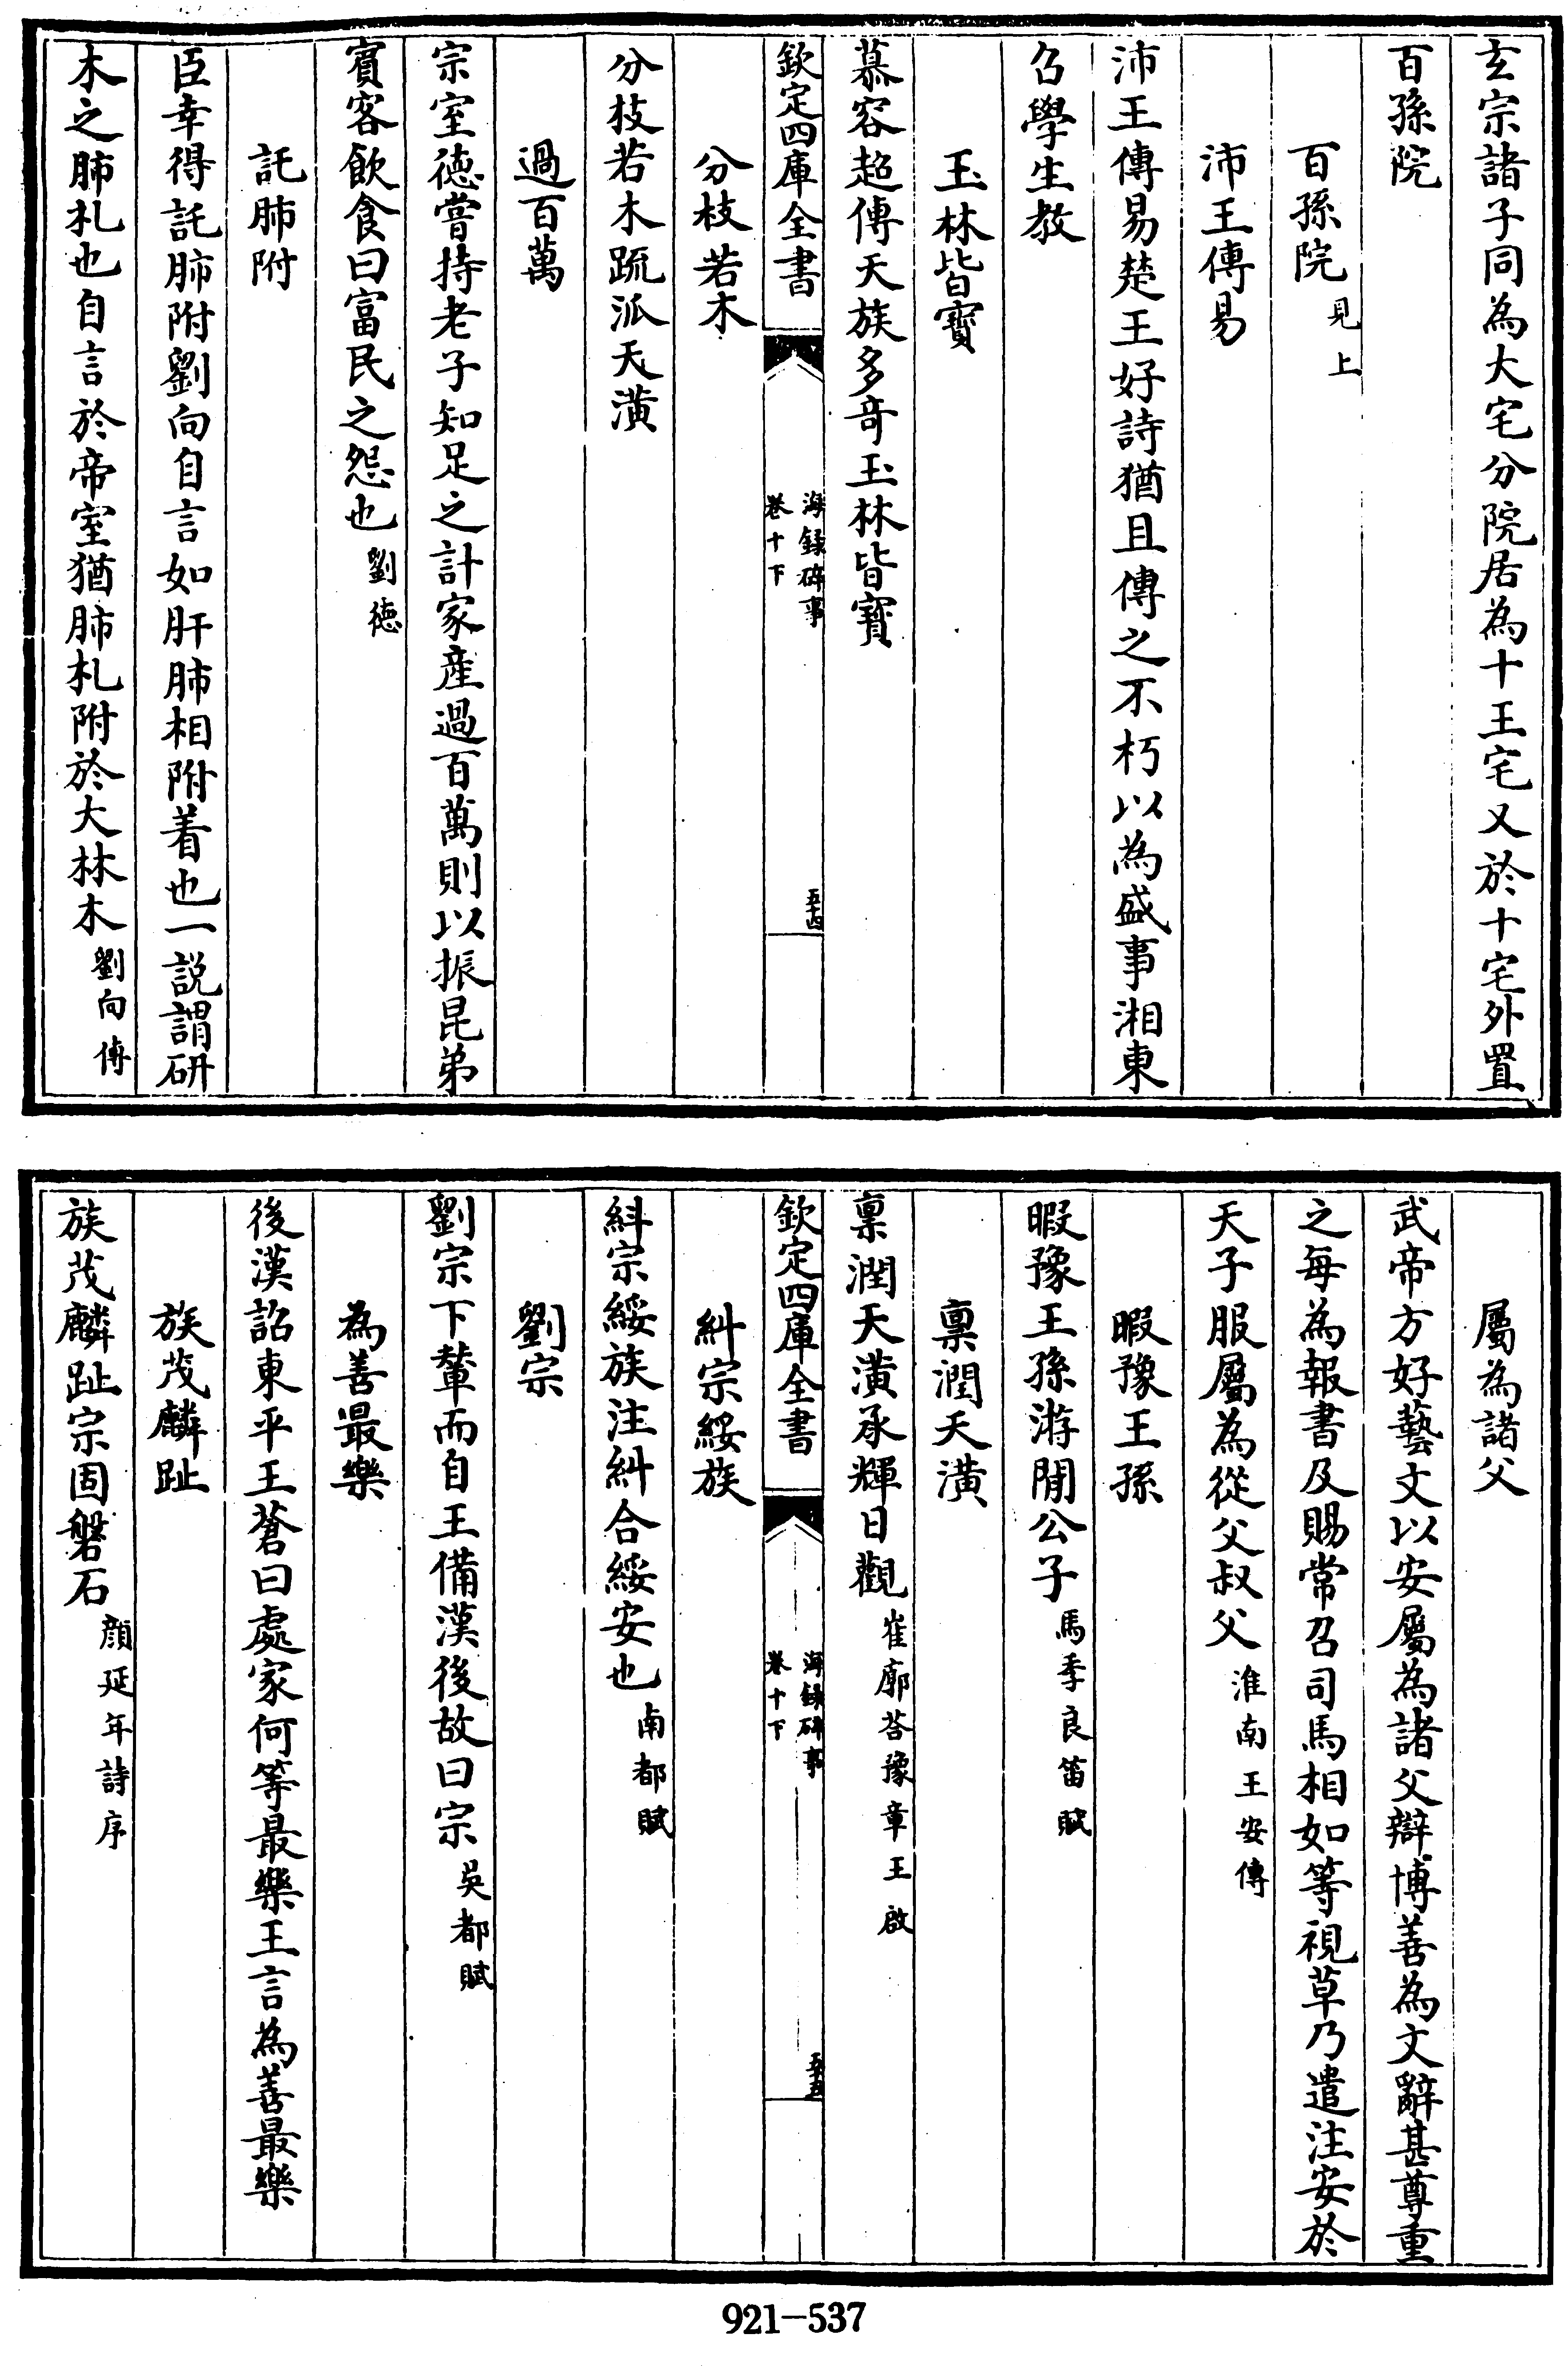 玄宗諸子同為大宅分院居為十王宅又於十宅外置
百孫院
百孫院見上
沛王傳易
沛王傳易楚王好詩猶且傳之不朽以為盛事湘東
㕦學生教
玉林皆寶
慕容超傳天族多奇玉林皆寶
欽定四庫全書
海録碎事
卷十下
五十四
分枝若木
分枝若木疏派天潢
過百萬
宗室徳嘗持老子知足之計家産過百萬則以振昆弟
賓客飲食曰富民之怨也劉徳
託肺附
臣幸得託肺附劉向自言如肝肺相附着也一説謂斫
木之肺札也自言於帝室猶肺札附於大林木劉向傳
屬為諸父
武帝方好藝文以安屬為諸父辯博善為文辭甚尊重
之每為報書及賜常召司馬相如等視草乃遣注安於
天子服屬為從父叔父淮南王安傳
暇豫王孫
暇豫王孫游閒公子馬季良笛賦
稟潤天潢
稟潤天潢承輝日觀崔廓荅豫章王啟
欽定四庫全書
海録碎事
卷十下
五十五
糾宗綏族
糾宗綏族注糾合綏安也南都賦
劉宗
劉宗下輦而自王備漢後故曰宗吳都賦
為善最樂
後漢詔東平王蒼曰處家何等最樂王言為善最樂
族茂麟趾
族茂麟趾宗固磐石顔延年詩序
921-537